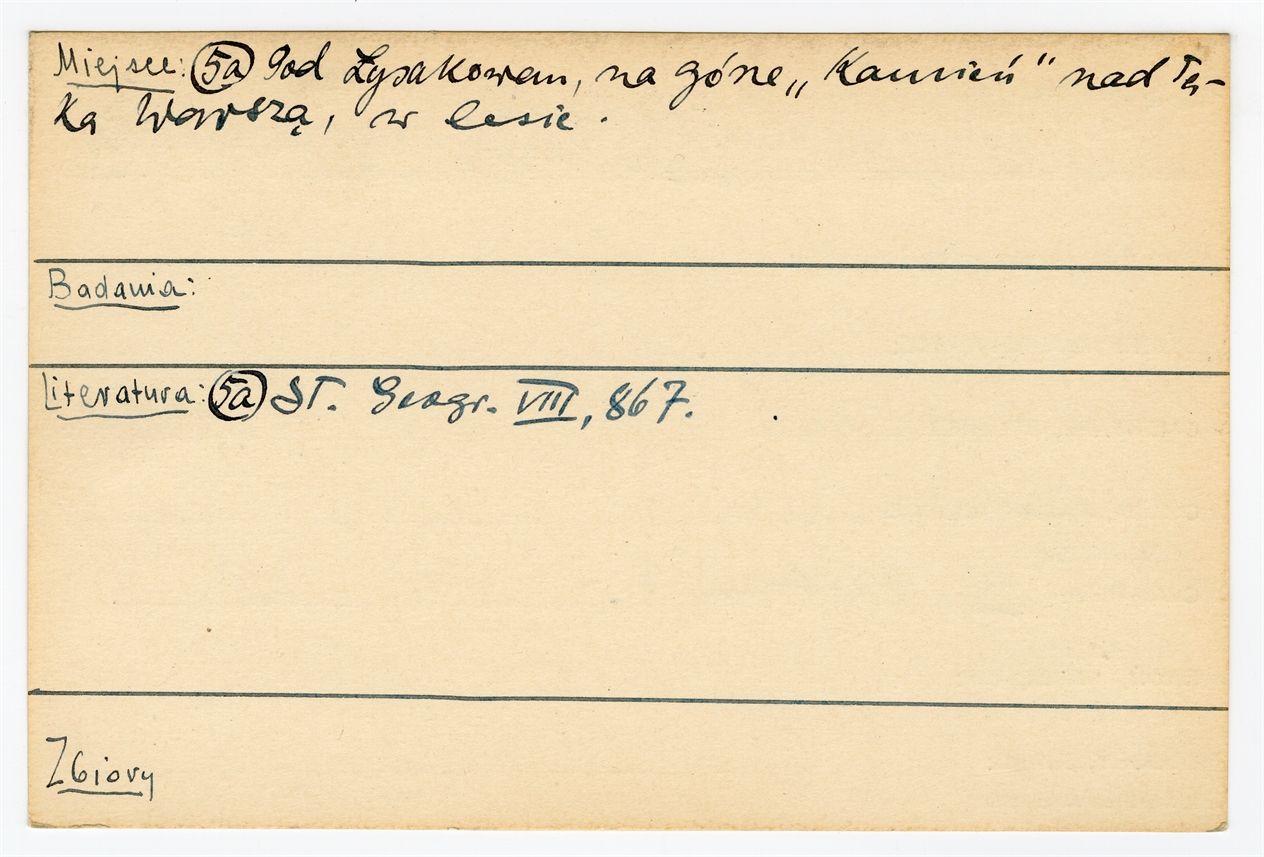 Miejsce: 5a Pod Łysakowem, na górze „Kamień" nad rze-
ką Warszą, w lesie.
Badania:
Literatura: 5a Sł. Geogr. VIII, 867.
Zbiory